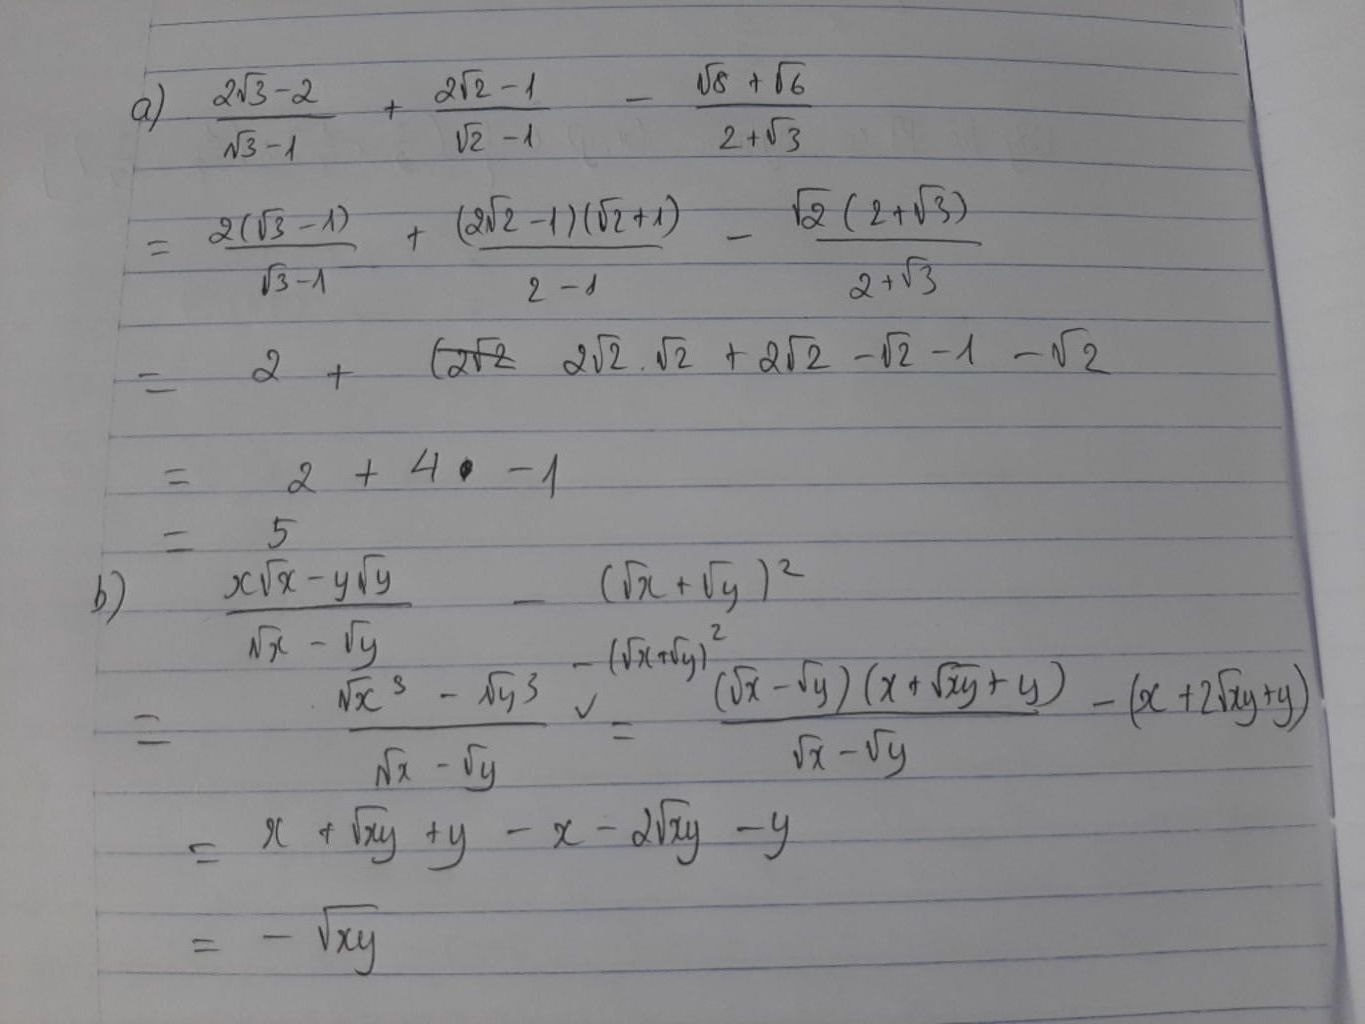 a) (2√3 - 2)/(√3 - 1) + (2√2 - 1)/(√2 - 1) - (√8 + √6)/(2 + √3)
= 2(√3 - 1)/(√3 - 1) + (2√2 - 1)(√2 + 1)/(2 - 1) - √2(2 + √3)/(2 + √3)
= 2 + (2√2 2√2 . √2 + 2√2 - √2 - 1 - √2
= 2 + 4 - 1
= 5
b) (x√x - y√y)/(√x - √y) - (√x + √y)²
= (√x³ - √y³)/(√x - √y) - (√x + √y)² = (√x - √y)(x + √xy + y)/(√x - √y) - (x + 2√xy + y)
= x + √xy + y - x - 2√xy - y
= - √xy